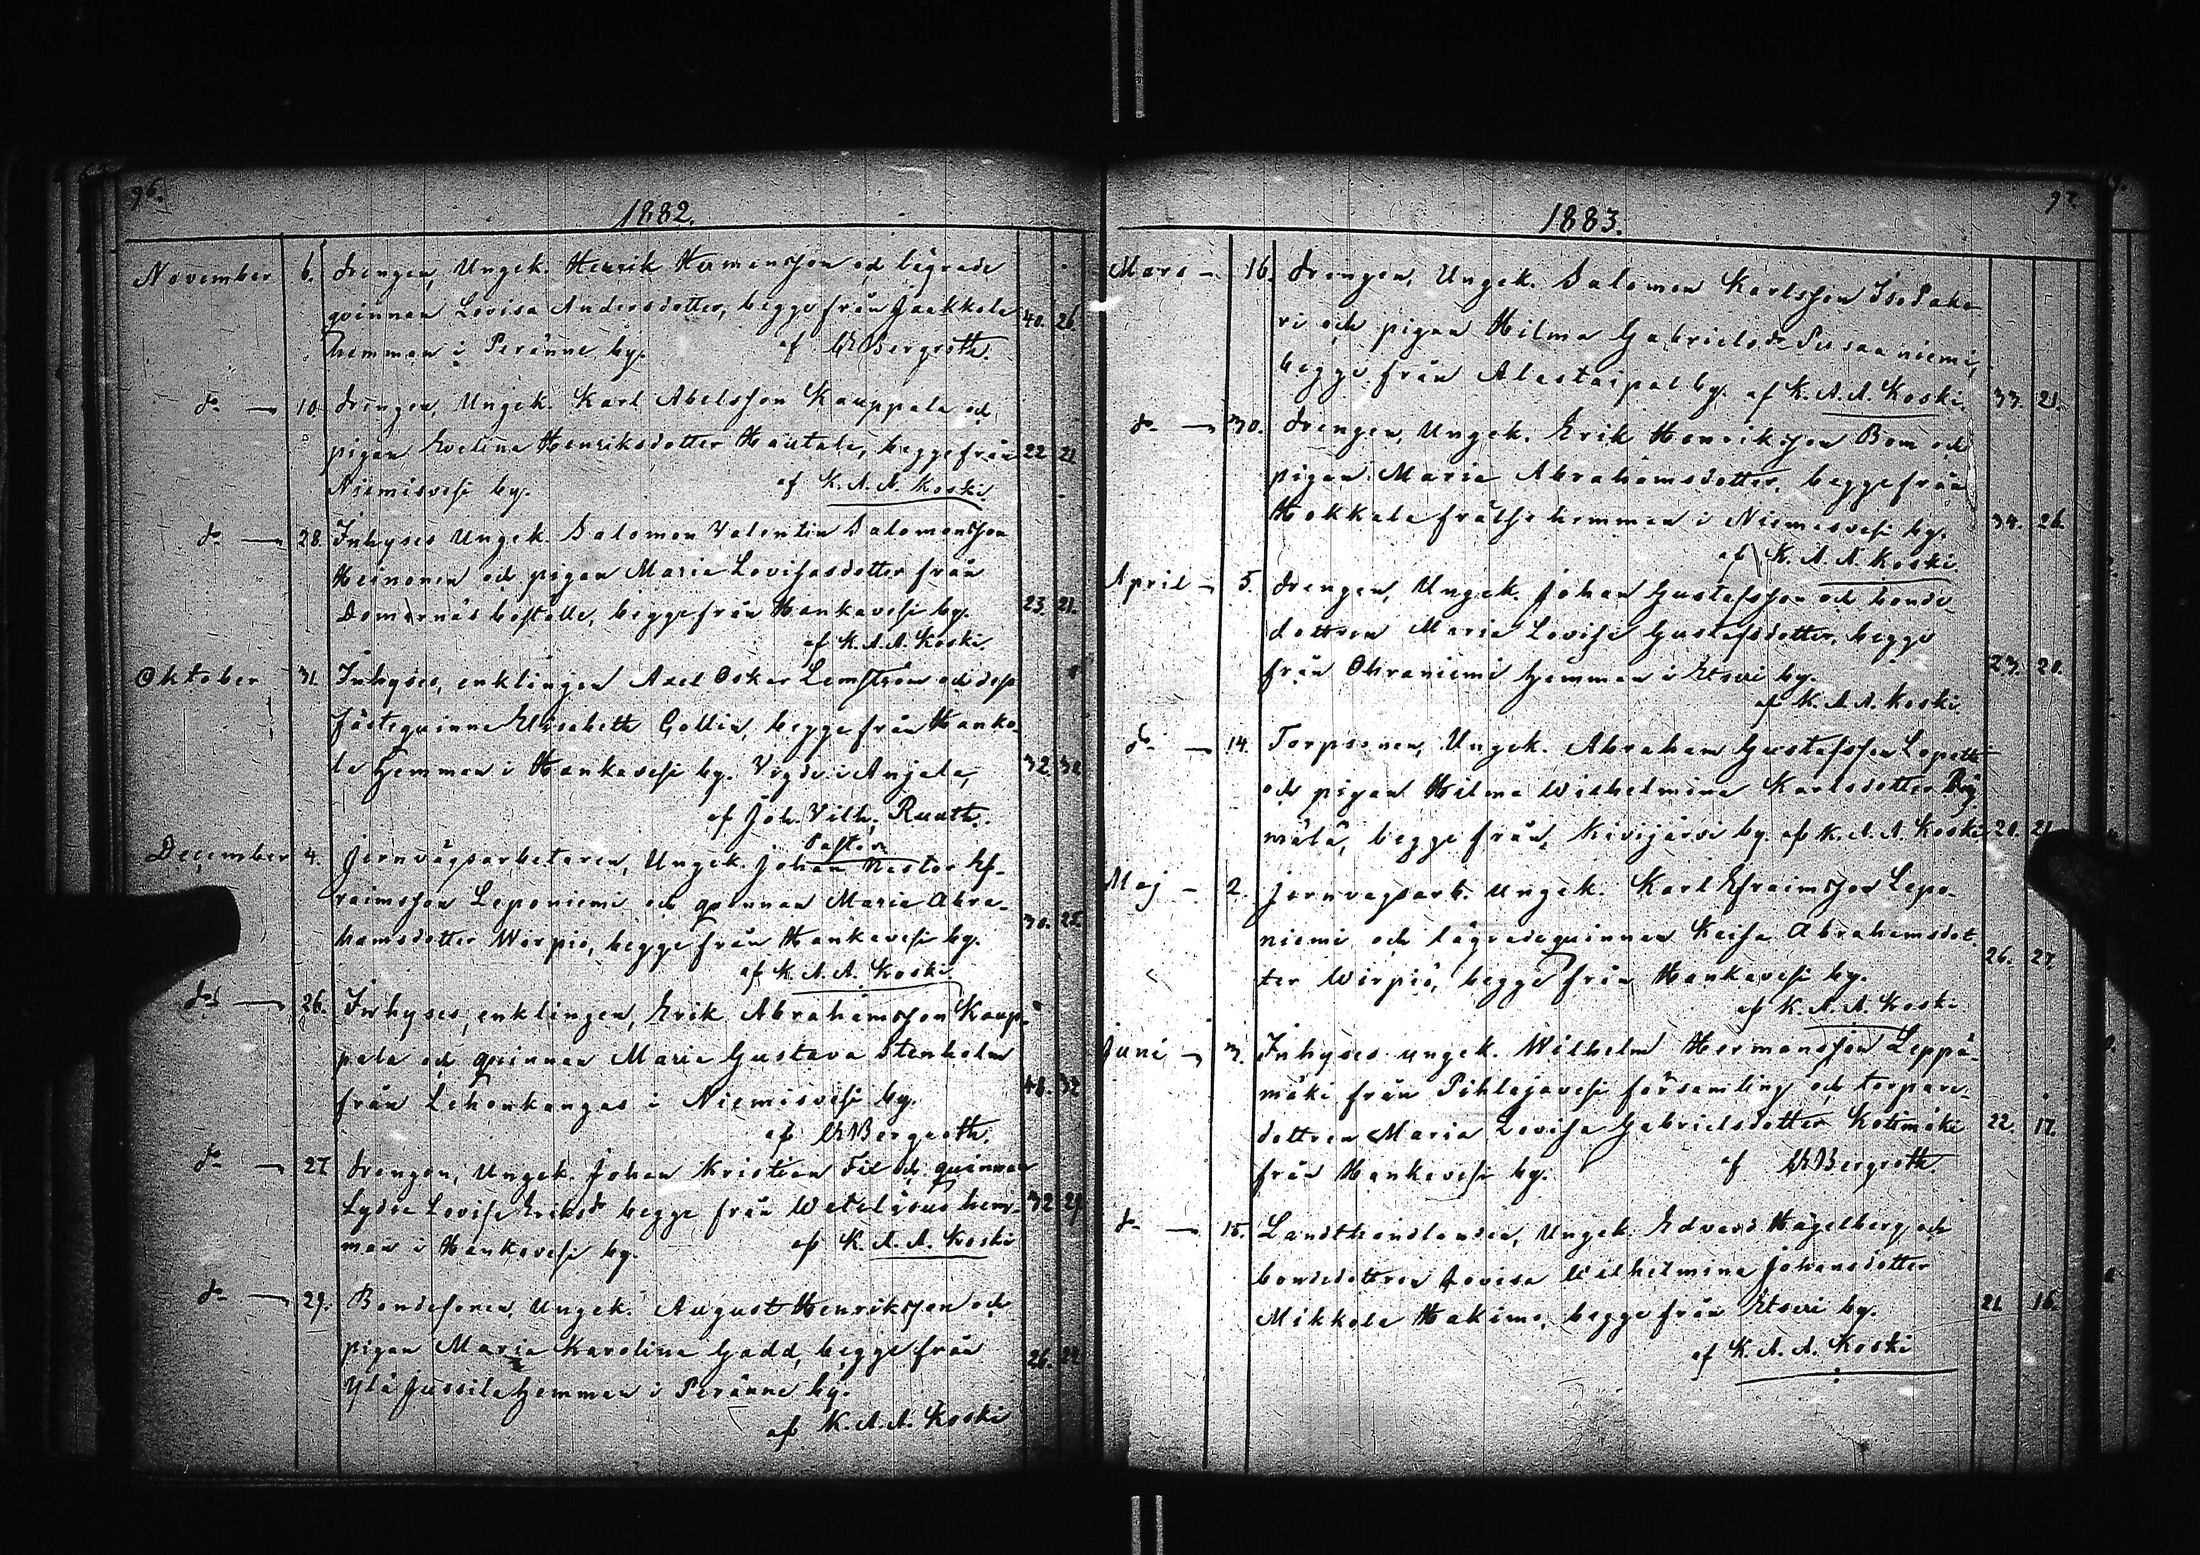 96.
1882.
November 6. Drengen, Ungek. Henrik Hermansson och lägrade
qvinnan Lovisa Andersdotter, begge från Jaakkola 40. 26.
hemman i Peränne by. af Bergroth.
do 10. Drengen, Ungek. Karl Abelsson Kauppala och
pigan Evelina Henriksdotter Hautala, begge från 22 21
Niemisvesi by. af K. A. A. Koski.
do 28. Inhyses Ungek. Salomon Valentin Salomonsson
Heinonen och pigan Maria Lovisasdotter från
Domarnäs boställe, begge från Hankavesi by. 23. 21.
af K. A. A. Koski.
Oktober 31. Inhyses, enklingen Axel Oskar Lemström och dess
fästeqvinna Elisabeth Gollin, begge från Hanka-
la hemman i Hankavesi by. Vigde i Anjala, 32
af Joh. Vilh. Ruuth.
Pastor
December 4. Jernvägsarbetaren, Ungek. Johan Nestor Ef-
raimsson Leponiemi och qvinnan Maria Abra-
hamsdotter Wirpiö, begge från Hankavesi by. 30. 25.
af K. A. A. Koski.
do 26. Inhyses, enklingen, Erik Abrahamsson Kaup-
pala och qvinnan Maria Gustava Stenholm
från Lehonkangas i Niemisvesi by. 48. 32
af Bergroth.
do 27. Drengen, Ungek. Johan Kristian Fil och qvinnan
Lydia Lovisa Eriksdr begge från Wetelisuo hem- 32 29
man i Hankavesi by. af K. A. A. Koski
do 29. Bondesonen, Ungek. August Henriksson och
pigan Maria Karolina Gadd, begge från
Ylä Jussila hemman i Peränne by. 26. 22
af K. A. A. Koski
97
1883.
Mars 16. Drengen, Ungek. Salomon Karlsson Iso Paka-
ri och pigan Hilma Gabrielsdr Pusaaniemi,
begge från Alastaipal by. af K. A. A. Koski. 33. 21.
do 30. Drengen, Ungek. Erik Henriksson Bom och
pigan Maria Abrahamsdotter, begge från
Hokkala frälse hemman i Niemisvesi by. 34. 26.
af K. A. A. Koski.
April 5. Drengen, Ungek. Johan Gustafsson och bonde-
dottren Maria Lovisa Gustafsdotter, begge
från Ohraniemi hemman i Etseri by. 23. 20.
af K. A. A. Koski.
do 14. Torpsonen, Ungek. Abraham Gustafsson
och pigan Hilma Wilhelmina Karlsdotter
mälä, begge från Kivijärvi by. af K. A. A. Koski. 20. 21
Maj 2. Jernvägsarb. Ungek. Karl Efraimsson Lepo-
niemi och lägradeqvinnan Kaisa Abrahamsdot-
ter Wirpiö, begge från Hankavesi by. 26. 27.
af K. A. A. Koski.
Juni 3. Inhyses ungek. Wilhelm Hermansson Leppä-
mäki från Pihlajavesi församling och torpare-
dottren Maria Lovisa Gabrielsdotter Kotimäki 22. 17.
från Hankavesi by. af Bergroth.
do 15. Landthandlanden, Ungek. Edvard Hägelberg och
bondedottren Lovisa Wilhelmina Johansdotter
Mikkola Hakima, begge från Etseri by. 21 16.
af K. A. A. Koski